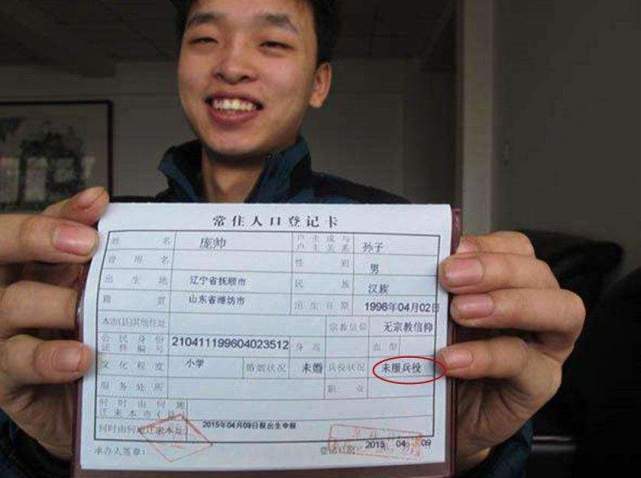 常住人口登记卡
姓名 庞帅 户主或与户主关系 孙子
曾用名 性别 男
出生地 辽宁省抚顺市 民族 汉族
籍贯 山东省潍坊市 出生日期 1996年04月02日
本市(县)其他住址 宗教信仰 无宗教信仰
公民身份证件编号 210411199604023512 身高 血型
文化程度 小学 婚姻状况 未婚 兵役状况 未服兵役
服务处所 职业
何时由何地迁来本市(县)
何时由何地迁来本址 2015年04月09日报出生申报
承办人签章: 2015 04 09